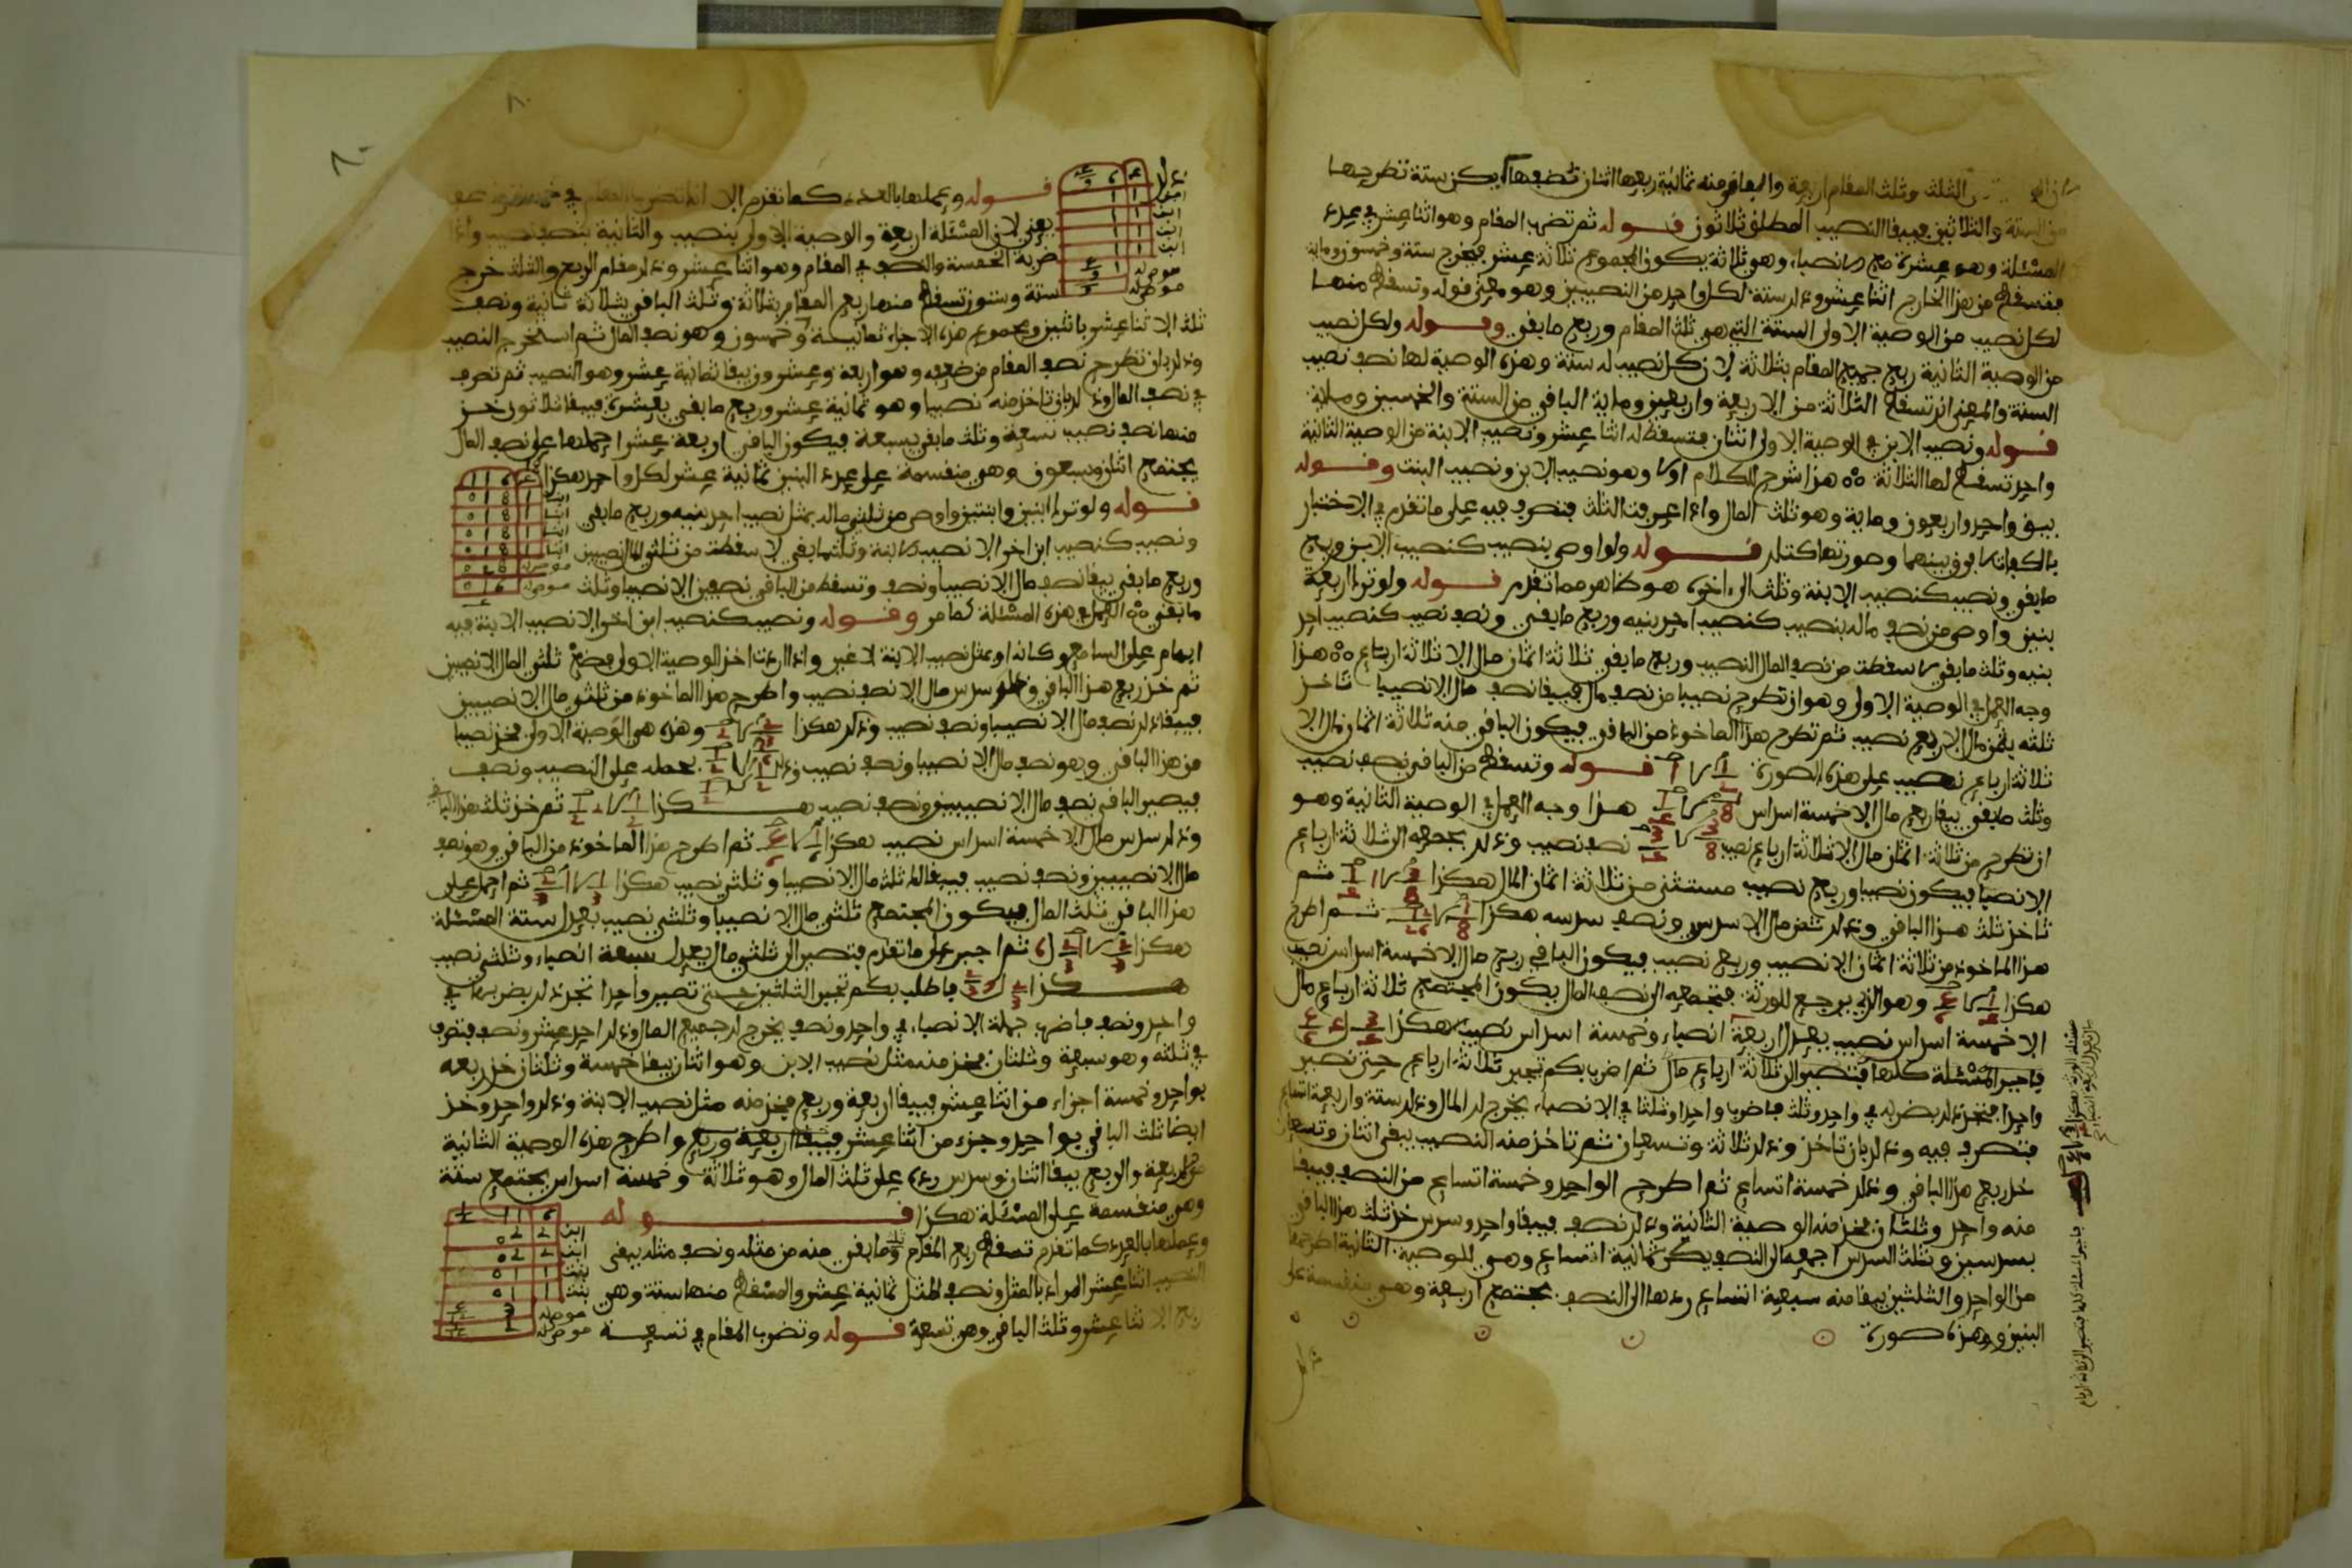 الثلث وثلث المقام اربعة والباقي منه ثمانية ربعها اثنان تضعفها يكن ستة تطرحها
من الستة والثلاثين فيبقا النصيب المطلق ثلاثون قوله ثم تضرب المقام وهو اثنا عشر في عدد
المسئلة وهو عشرة مع الانصباء وهو ثلاثة يكون المجموع ثلاثة عشر فيخرج ستة وخمسون ومايه
فتسقط من هذا الخارج اثنا عشر وذلك ستة لكل واحد من النصيبين وهو معنى قوله وتسقط منها
لكل نصيب من الوصية الاولى الستة التي هي ثلث المقام وربع ما بقي وقوله ولكل نصيب
من الوصية الثانية ربع جميع المقام بثلاثة لان كل نصيب له ستة وهذه الوصية لها نصف نصيب
الستة والمعنى ان تسقط الثلاثة من الاربعة واربعين وماية الباقي من الستة والخمسين وماية
قوله ونصيب الابن في الوصية الاولى اثنان فتسقط له اثنا عشر ونصيب الابنة من الوصية الثانية
واحد تسقط لها الثلاثة هذا شرح للكلام اولا وهو نصيب الابن ونصيب البنت وقوله
يبق واحد واربعون وماية وهو ثلث المال واذا عرفت الثلث فتصرف فيه على ما تقدم في الاختبار
بالكفات لا فرق بينهما وصورتها كتلك قوله ولو اوصى بنصيب كنصيب الابن وربع
ما بقي ونصيب كنصيب الابنة وثلث الى اخره هو ظاهر مما تقدم قوله ولو ترك اربعة
بنين واوصى من نصف ماله بنصيب كنصيب احد بنيه وربع ما بقي ونصف نصيب كنصيب احد
بنيه وثلث ما بقي لاسقطت من نصف المال النصيب وربع ما بقي ثلاثة اثمان مال الا ثلاثة ارباع هذا
وجه العمل في الوصية الاولى وهو ان تطرح نصيبا من نصف مال فيبقا نصف مال الا نصيبا تاخذ
ثلثه يثمن مال الا ربع نصيب ثم تطرح هذا الماخوذ من الباقي فيكون الباقي منه ثلاثة اثمان مال الا
ثلاثة ارباع نصيب على هذه الصورة قوله وتسقط من الباقي نصف نصيب
وثلث ما بقي يبقا ربع مال الا خمسة اسداس هذا وجه العمل في الوصية الثانية وهو
ان تطرح من ثلاثة اثمان مال الا ثلاثة ارباع نصيب نصف نصيب وذلك بجمعه الى ثلاثة ارباع
الانصبا فيكون نصيبا وربع نصيب مستثنى من ثلاثة اثمان المال هكذا ثم
تاخذ ثلث هذا الباقي وذلك ثمن مال الا سدس ونصف سدسه هكذا ثم اطرح
هذا الماخوذ من ثلاثة اثمان الا نصيب وربع نصيب فيكون الباقي ربع مال الا خمسة اسداس نصيب
هكذا وهو الذي يرجع للورثة فتجمعه الى نصف المال يكون المجتمع ثلاثة ارباع مال
الا خمسة اسداس نصيب يعدل اربعة انصباء وخمسة اسداس نصيب هكذا
فاجبر المسئلة كلها فتصير الى ثلاثة ارباع مال ثم اضرب بكم تجبر ثلاثة ارباع حتى تصير
واحدا فتجزء لك بضربه في واحد وثلث فاضرب واحدا وثلثا في الانصباء يخرج لك المال وذلك ستة واربعة اتساع
فتصرف فيه وذلك بان تاخذ وذلك ثلاثة وتسعان ثم تاخذ منه النصيب يبقى اثنان وتسعان
خذ ربع هذا الباقي وذلك خمسة اتساع ثم اطرح الواحد وخمسة اتساع من النصف فيبقا
منه واحد وثلثان فخذ منه الوصية الثانية وذلك نصف فيبقا واحد وسدس خذ ثلث هذا الباقي
بسدسين وثلث السدس اجمعه الى النصف يكن ثمانية اتساع وهي للوصية الثانية اطرحها
من الواحد والثلثين يبقا منه سبعة اتساع ردها الى النصف يجتمع اربعة وهي منقسمة على
البنين وهذه صورة
قوله وعملها بالعدد كما تقدم الا انك تضرب المقام في خمسة ونصف
يعني لان المسئلة اربعة والوصية الاولى بنصيب والثانية بنصف نصيب واذا
ضربة الخمسة والنصف في المقام وهو اثنا عشر وذلك مقام الربع والثلث خرج
ستة وستون تسقط منها ربع المقام بثلاثة وثلث الباقي بثلاثة ثانية ونصف
ثلث الاثنا عشر باثنين ومجموع هذه الاجزاء ثمانية وخمسون وهو نصف المال ثم استخرج النصيب
وذلك بان تطرح نصف المقام من ضعفه وهو اربعة وعشرون يبقا ثمانية عشر وهو النصيب ثم تصرف
في نصف المال وذلك بان تاخذ منه نصيبا وهو ثمانية عشر وربع ما بقي بعشرة فيبقا ثلاثون خذ
منها نصف نصيب تسعة وثلث ما بقي بسبعة فيكون الباقي اربعة عشر اجملها على نصف المال
يجتمع اثنان وسبعون وهي منقسمة على عدد البنين ثمانية عشر لكل واحد هكذا
قوله ولو ترك ابنين وابنتين واوصى من ثلثي ماله بمثل نصيب احد بنيه وربع ما بقي
ونصيب كنصيب ابن اخر الا نصيب الابنة وثلث ما بقي لاسقطت من ثلثي المال نصيبين
وربع ما بقي يبقا نصف مال الا نصيبا ونصف وتسقط من الباقي نصيبين الا نصيبا وثلث
ما بقي العمل في هذه المسئلة كما مر وقوله ونصيب كنصيب ابن اخر الا نصيب الابنة فيه
ايهام على السامع وكانه اوصى بمثل نصيب الابنة لا غير واذا اردت اخذ الوصية الاولى فضع ثلثي المال الا نصيبين
ثم خذ ربع هذا الباقي وهو سدس مال الا نصف نصيب واطرح هذا الماخوذ من ثلثي مال الا نصيبين
فيبقا ذلك نصف مال الا نصيبا ونصف نصيب وذلك هكذا وهذه هي الوصية الاولى فخذ نصيبا
من هذا الباقي وهو نصف مال الا نصيبا ونصف نصيب بحمله على النصيب ونصف
فيصير الباقي نصف مال الا نصيبين ونصف نصيب هكذا ثم خذ ثلث هذا الباقي
وذلك سدس مال الا خمسة اسداس نصيب هكذا ثم اطرح هذا الماخوذ من الباقي وهو نصف
مال الا نصيبين ونصف نصيب فيبقا لك ثلث مال الا نصيبا وثلثي نصيب هكذا ثم اجمل على
هذا الباقي ثلث المال فيكون المجتمع ثلثي مال الا نصيبا وثلثي نصيب يعدل ستة المسئلة
هكذا ثم اجبر على ما تقدم فتصير الى ثلثي مال يعدل سبعة انصباء وثلثي نصيب
هكذا فاطلب بكم تجبر الثلثين حتى تصير واحدا تجزء لك بضربها في
واحد ونصف فاضرب جملة الانصباء في واحد ونصف يخرج لك جميع المال وذلك احد عشر ونصف فتصرف
في ثلثه وهو سبعة وثلثان فخذ منه مثل نصيب الابن وهو اثنان يبقا خمسة وثلثان خذ ربعه
بواحد وخمسة اجزاء من اثنا عشر فيبقا اربعة وربع فخذ منه مثل نصيب الابنة وذلك واحد وخذ
ايضا ثلث الباقي بواحد وجزء من اثنا عشر فيبقا اربعة وربع واطرح هذه الوصية الثانية
من الاربعة والربع يبقا اثنان وسدس زده على ثلث المال وهو ثلاثة وخمسة اسداس يجتمع ستة
وهي منقسمة على المسئلة هكذا قوله
وعملها بالعدد كما تقدم تسقط ربع المقام وما بقي منه من مثله ونصف مثله يبقى
النصيب اثنا عشر المراد بالمثل ونصف المثل ثمانية عشر والمسقط منها ستة وهي
ربع الاثنا عشر وثلث الباقي وهي تسعة قوله وتضرب المقام في تسعة